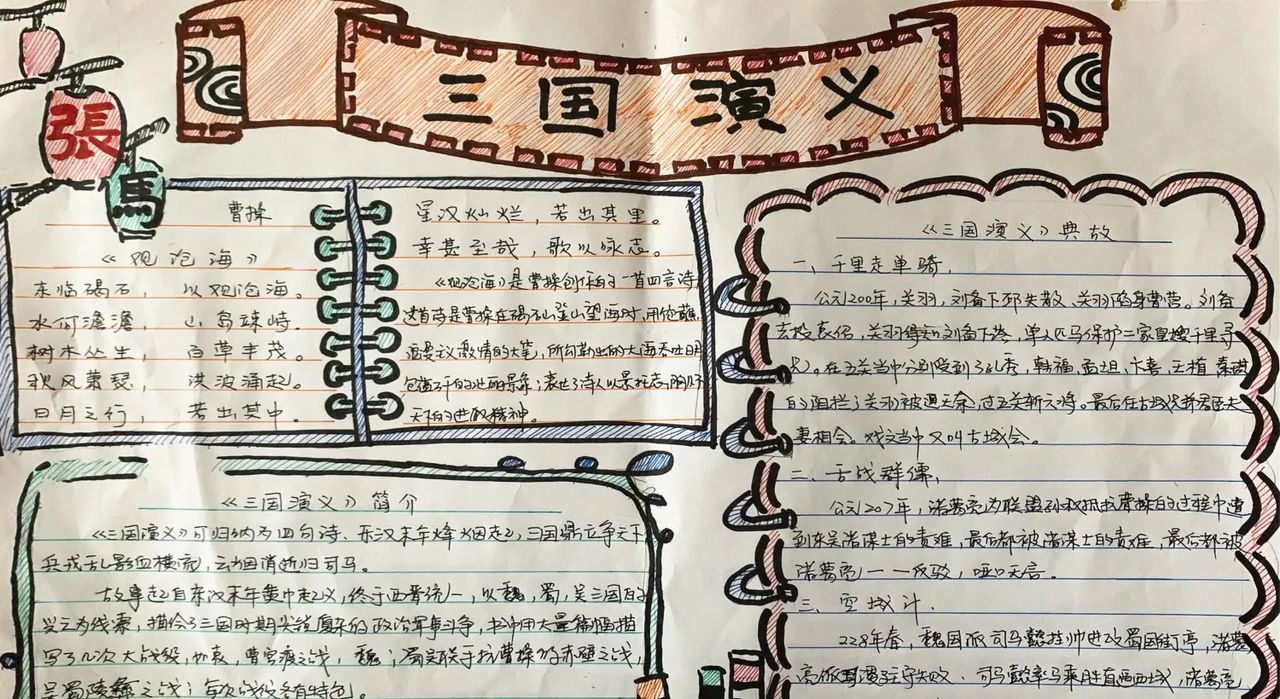 三国演义
張
馬
曹操
《观沧海》
东临碣石， 以观沧海。
水何澹澹， 山岛竦峙。
树木丛生， 百草丰茂。
秋风萧瑟， 洪波涌起。
日月之行， 若出其中。
星汉灿烂，若出其里。
幸甚至哉，歌以咏志。
《观沧海》是曹操创作的一首四言诗
这首诗是曹操在碣石山登山望海时，用饱蘸
浪漫主义激情的大笔，所勾勒出的大海吞吐日月
包蕴万千的壮丽景象；表达了诗人以景托志，胸怀
天下的进取精神。
《三国演义》简介
《三国演义》可归纳为四句诗、东汉末年烽烟起，三国鼎立争天下
兵戎乱影血横流，云烟消逝归司马。
故事起自东汉末年黄巾起义，终于西晋统一，以魏，蜀，吴三国的
兴亡为线索，描绘了三国时期尖锐复杂的政治军事斗争，书中用大量篇幅描
写了几次大战役，如袁，曹官渡之战，魏；蜀吴联手抗曹操的赤壁之战，
吴蜀陵之战；每次战役各有特色。
《三国演义》典故
一、千里走单骑，
公元200年，关羽，刘备下邳失散、关羽陷身曹营。刘备
去投袁绍，关羽得知刘备下落，单人匹马保护二家皇嫂千里寻
兄。在五关当中分别受到了孔秀，韩福，孟坦、卞喜，王植，秦琪
的阻拦；关羽被逼无奈，过五关斩六将。最后在古城
妻相会。戏文当中又叫古城会。
二、舌战群儒，
公元207年，诸葛亮为联盟孙权抵抗曹操的过程中遭
到东吴诸谋士的责难，最后都被诸谋士的责难，最后都被
诸葛亮一一反驳，哑口无言。
三、空城计．
228年春，魏国派司马懿挂帅进攻蜀国街亭，诸葛
亮派马谡驻守失败．司马懿率马乘胜直逼西城，诸葛亮